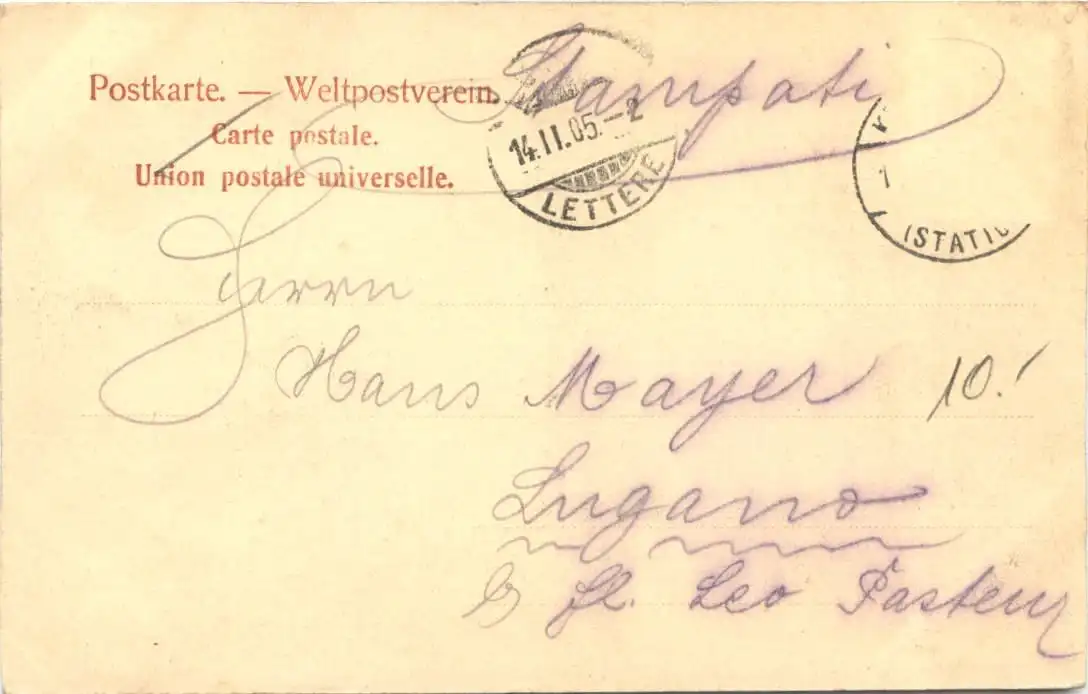 Stampati
Postkarte. — Weltpostverein.
Carte postale.
Union postale universelle.
14.II.05.-2
LETTERE
Herrn
Hans Mayer
10.
Lugano
Leo Pasteur